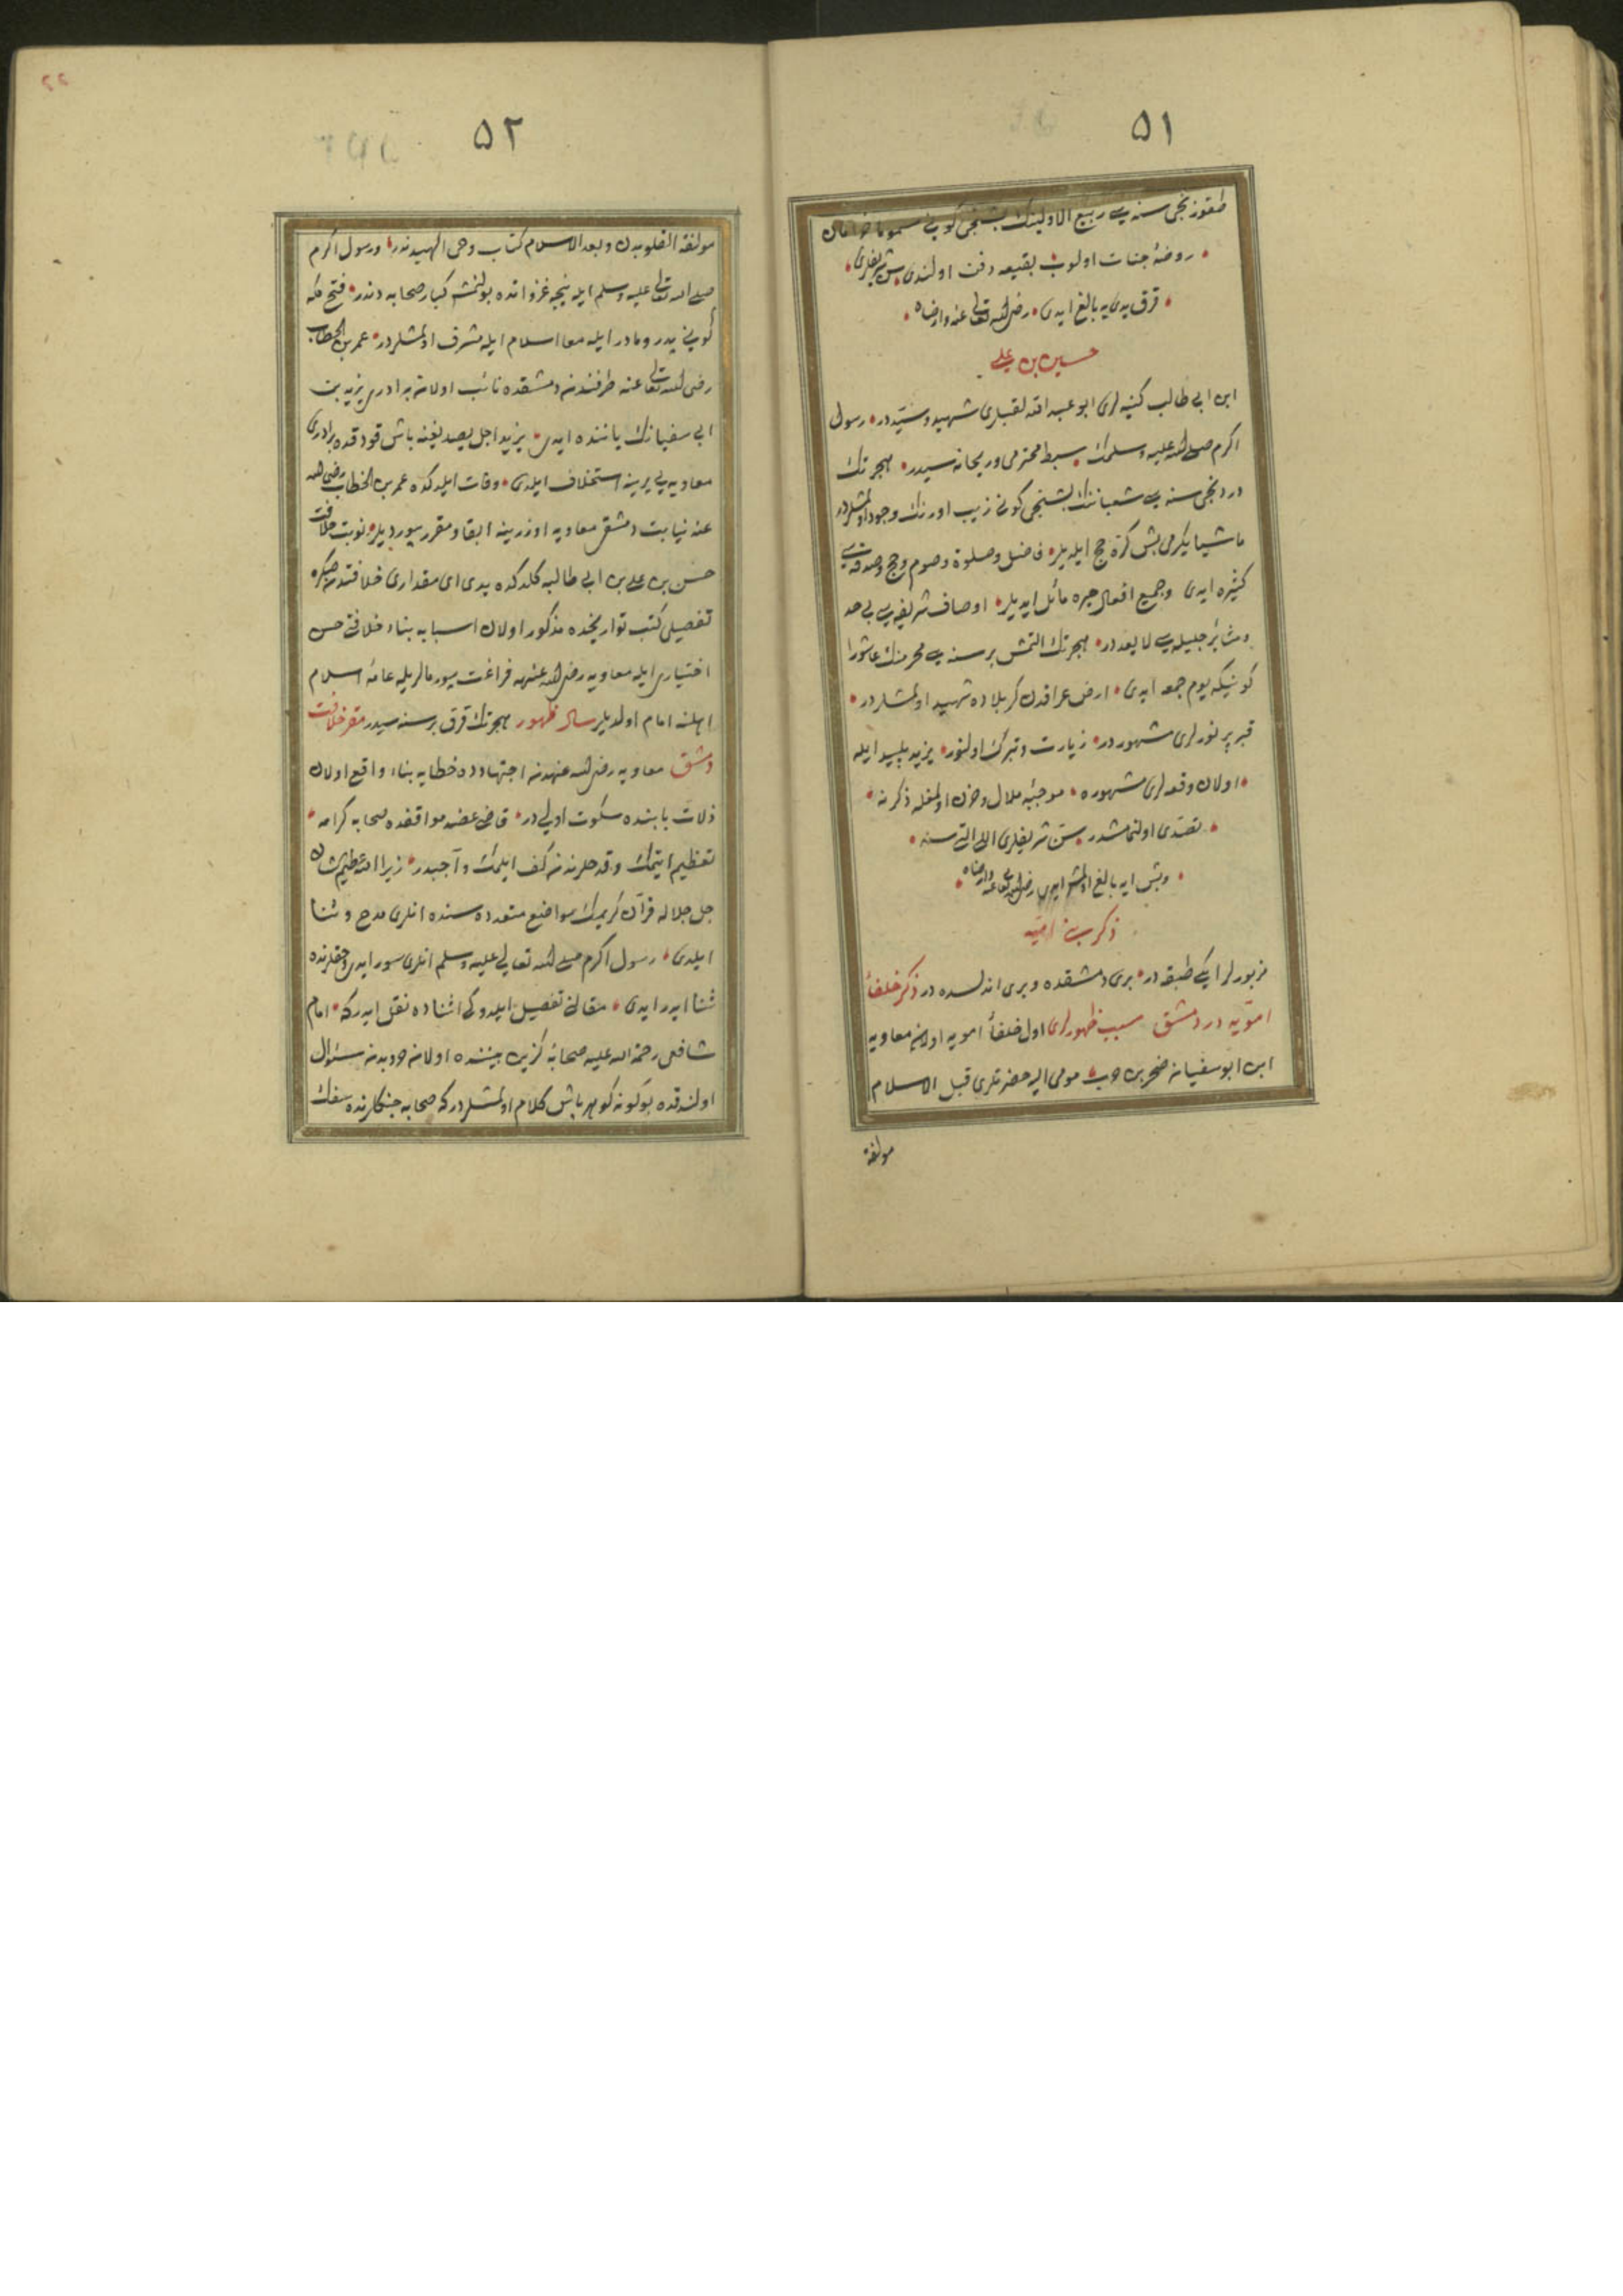 ٥١
طقوزنجی سنه سی ربیع الاولینك بشنجی کونی مسموما
روضهٔ جنات اولوب بقیعه دفن اولندی سن شریفلری
قرق یدی یه بالغ ایدی رضی الله تعالی عنه وارضاه
حسین بن علی
ابن ابی طالب کنیه لری ابو عبد الله لقبلری شهید وسیّد در رسول
اکرم صلی الله علیه وسلمك سبط محترمی وریحانه سیدر هجرتك
دردنجی سنه سی شعباننك بشنجی کونی زیب اورنك وجود اولمشلردر
ماشیا یکرمی بش کرّه حج ایلدیلر فاضل وصلوة وصوم وحج وصدقه سی
کثیره ایدی وجمیع افعال خیره مائل ایدیلر اوصاف شریفه سی بی حد
ومٔاثر جلیله سی لا یعد در هجرتك التمش بر سنه سی محرمنك عاشورا
کونیکه یوم جمعه ایدی ارض عراقدن کربلاده شهید اولمشلردر
قبر پر نورلری مشهوردر زیارت وتبرك اولنور یزید پلید ایله
اولان وقعه لری مشهوره موجبهٔ ملال وحزن اولمغله ذکرنه
تصدّی اولنمامشدر سنّ شریفلری اللی التی سنه
وبش ایه بالغ اولمش ایدی رضی الله تعالی عنه وارضاه
ذکر بنی امیّه
مزبورلر ایکی طبقه در بری دمشقده وبری اندلسده در ذکر خلفأ
امویه در دمشق سبب ظهورلری اول خلفأ امویه اولان معاویه
ابن ابو سفیان صخر بن حرب مومی الیه حضرتلری قبل الاسلام
مولفة
٥٢
٢٢
مولفة القلوبدن وبعد الاسلام کتاب وحی الهیدندر ورسول اکرم
صلی الله تعالی علیه وسلم ایله نیجه غزواتده بولنمش کبار صحابه دندر فتح مکه
کونی پدر ومادر ایله معا اسلام ایله مشرف اولمشلردر عمر بن الخطاب
رضی الله تعالی عنه طرفندن دمشقده نائب اولان برادری یزید بن
ابی سفیانك یاننده ایدی یزید اجل یصدیغنه باش قودقده برادری
معاویه یی یرینه استخلاف ایلدی وفات ایلدکده عمر بن الخطاب رضی الله
عنه نیابت دمشقی معاویه اوزرینه ابقا ومقرر بیوردیلر نوبت خلافت
حسن بن علی بن ابی طالبه کلدکده یدی ای مقداری خلافتدن صکره
تفصیلی کتب تواریخده مذکور اولان اسبابه بناء خلافتی حسن
اختیاری ایله معاویه رضی الله عنهه فراغت بیورمالریله عامهٔ اسلام
اهلنه امام اولدیلر سال ظهور هجرتك قرق بر سنه سیدر مقر خلافت
دمشق معاویه رضی الله عنهدن اجتهادده خطایه بناء واقع اولان
ذلات بابنده سکوت اولی در قاضی عضد مواقفده صحابه کرامه
تعظیم ایتمك وقدحلرندن کف ایلمك واجبدر زیرا الله عظیم الشان
جل جلاله قرآن کریمك مواضع متعدده سنده انلری مدح وثنا
ایلدی رسول اکرم صلی الله تعالی علیه وسلم انلری سور ایدی وحقلرنده
ثنا ایدر ایدی مقالنی تفصیل ایلدوکی اثناده نقل ایدرکه امام
شافعی رحمة الله علیه صحابهٔ کزین بیننده اولان حروبدن سئوال
اولندقده بوکونه کوهر پاش کلام اولمشلردر که صحابه جنکلرنده سفك